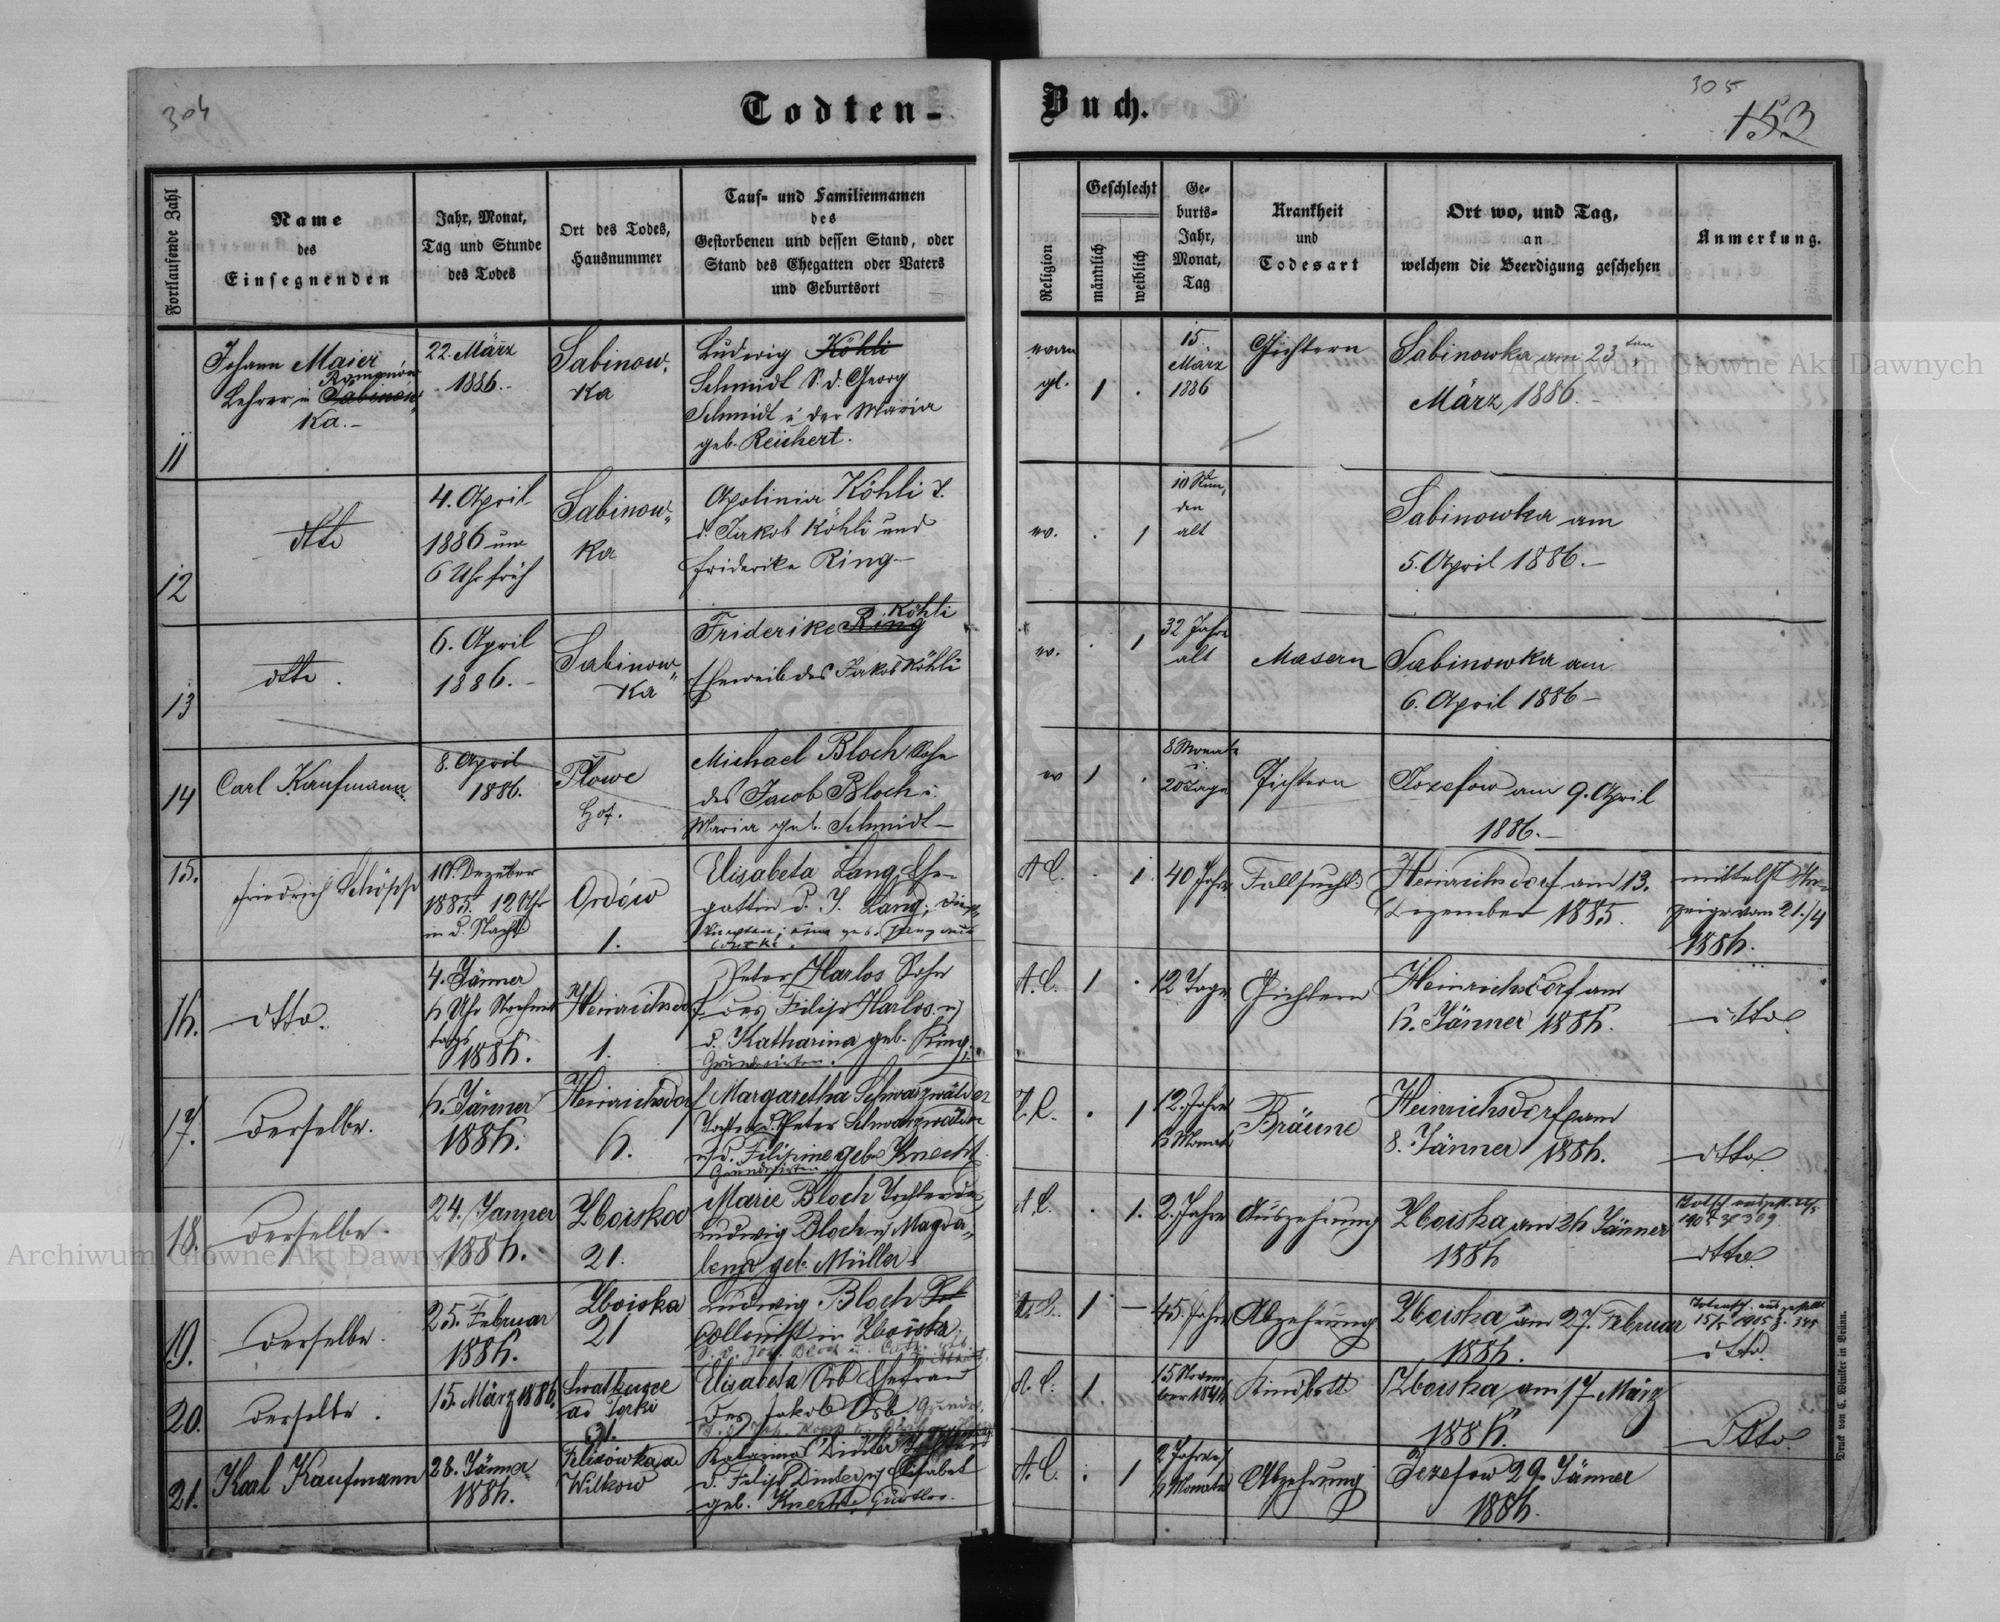 304
Todten-
Buch.
305
153
Fortlaufende Zahl
Name
des
Einsegnenden
Jahr, Monat,
Tag und Stunde
des Todes
Ort des Todes,
Hausnummer
Tauf- und Familiennamen
des
Gestorbenen und dessen Stand, oder
Stand des Ehegatten oder Vaters
und Geburtsort
Religion
Geschlecht
männlich
weiblich
Ge-
burts-
Jahr,
Monat,
Tag
Krankheit
und
Todesart
Ort wo, und Tag,
an
welchem die Beerdigung geschehen
Anmerkung.
11
Johann Maier
Lehrer in Sabinow
ka.-
22. März
1886.-
Sabinow-
ka
Ludwig Köhli
Schmidt S. d. Georg
Schmidt u der Maria
geb. Reichert.
evan
gl.
1
15.
März
1886
Gichtern
Sabinowka am 23ten
März 1886.-
12
dtto
4. April
1886 um
6 Uhr früh
Sabinow-
ka
Apolinia Köhli T.
d. Jakob Köhli und
Friderike Ring-
ev.
1
10 Stun,
den
alt
Sabinowka am
5. April 1886.-
13
dtto.
6. April
1886.-
Sabinow-
ka
Köhli
Friderike Ring
Eheweib des Jakob Köhli
ev.
1
32 Jahre
alt
Masern
Sabinowka am
6. April 1886-
14
Carl Kaufmann
8. April
1886.
Plowe
Hof.
Michael Bloch Sohn
des Jacob Bloch u.
Maria geb. Schmidt-
ev
1
8 Monate
u.
20 Tage
Gichtern
Jozefow am 9. April
1886.-
15.
Friedrich Schöpp
Dezember
1885. 12 Uhr
in d. Nacht
Ordów
1.
Elisabeta Lang, Ehe-
gattin d. J. Lang;
A. C.
1
40 Jahre
Fallsucht
Heinrichsdorf am 13.
Dezember 1885.
mittelst An-
zeige vom 21./4
1886.
16.
dtto.
4. Jänner
6 Uhr Nachmit
tags
1886.
Heinrichsdorf
1.
Peter Harlos Sohn
des Filipp Harlos u
d. Katharina geb. Ring,
A. C.
1
12 Tage
Gichtern
Heinrichsdorf am
6. Jänner 1886.
dtto
17.
derselbe.
6. Jänner
1886.
Heinrichsdorf
6.
Margaretha Schwarzwälder
Tochter d. Peter Schwarzwälder
u d. Filipine geb. Knecht
A. C.
1
12. Jahre
6 Monate
Bräune
Heinrichsdorf am
8. Jänner 1886.
dtto
18.
derselbe.
24. Janner
1886.
Zboiska
21.
Marie Bloch Tochter des
Ludwig Bloch u Magda-
lena geb. Müller
A. C.
1.
2. Jahre
Auszehrung
Zboiska am 26 Jänner
1886
dtto
19.
derselbe.
25. Februar
1886.
Zboiska
21
Ludwig Bloch
Collonist in Zboiska
A. C.
1
—
45. Jahre
Abzehrung
Zboiska am 27. Februar
1886.
dtto.
20.
derselbe.
15. März 1886
ad Torki
31.
Elisabeta Orb Ehefrau
des Jakob Orb
A. C.
1
15 Novem
ber
Kindbett
Zboiska am 17 März
1886.
dtto.
21.
Karl Kaufmann
28. Jänner
1886.
Felixowka ad
Witkow
Katarina Dinkler Tochter
d. Filipp Dinkler u Elisabet
geb. Knecht
A. C.
1
2 Jahre
6 Monate
Abzehrung
Jozefow 29. Jänner
1886.
Druck von C. Winiker in Brünn.
Archiwum Główne Akt Dawnych
Archiwum Główne Akt Dawnych